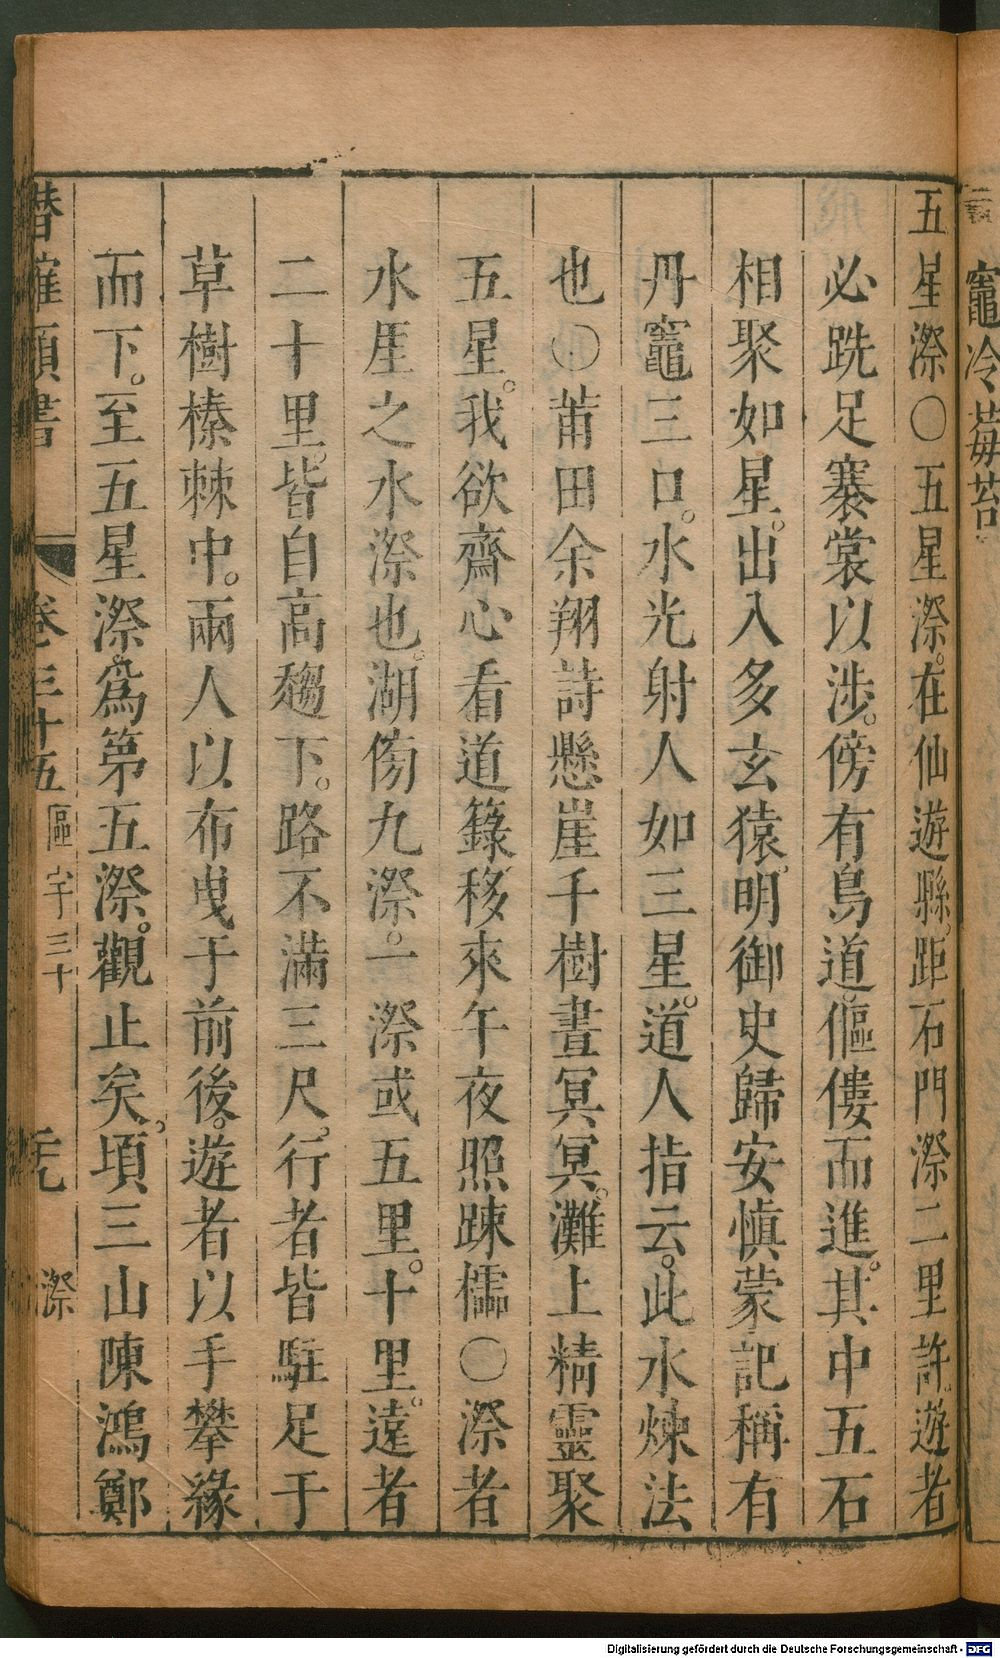 竈冷莓苔
五星漈○五星漈。在仙遊縣。距石門漈二里許。遊者
必跣足褰裳以涉。傍有鳥道。傴僂而進。其中五石
相聚如星。出入多玄猿。明御史歸安愼蒙記稱有
丹竈三口。水光射人如三星。道人指云。此水煉法
也○莆田余翔詩懸崖千樹晝冥冥。灘上精靈聚
五星。我欲齋心看道籙。移來午夜照踈櫺○漈者
水厓之水漈也。湖傍九漈。一漈或五里。十里。遠者
二十里。皆自高趨下。路不滿三尺。行者皆駐足于
草樹榛棘中。兩人以布曳于前後。遊者以手攀緣
而下。至五星漈。爲第五漈。觀止矣。頃三山陳鴻鄭
潛確類書 卷三十五 區宇三十 漈
Digitalisierung gefördert durch die Deutsche Forschungsgemeinschaft - DFG